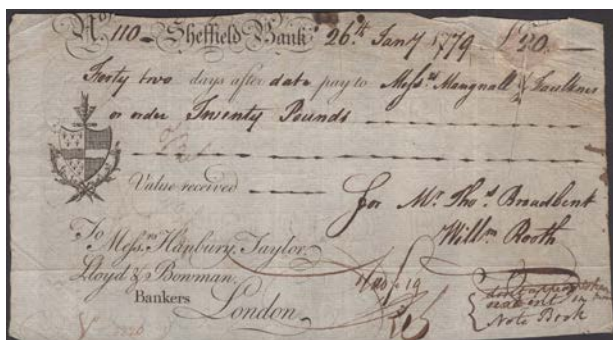 No. 110 - Sheffield Bank 26th. Jany 1779 £20
Forty two days after date pay to Messrs Maugnall & Faulkner
or order Twenty Pounds
Value received for Mr. Thos. Broadbent
Willm Booth
To
Messrs. Hanbury, Taylor,
Lloyd & Bowman,
Bankers London
in
Note Book